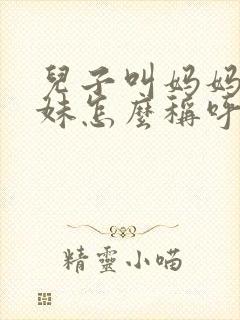 兒子叫媽媽
妹怎麼稱呼
精靈小喵